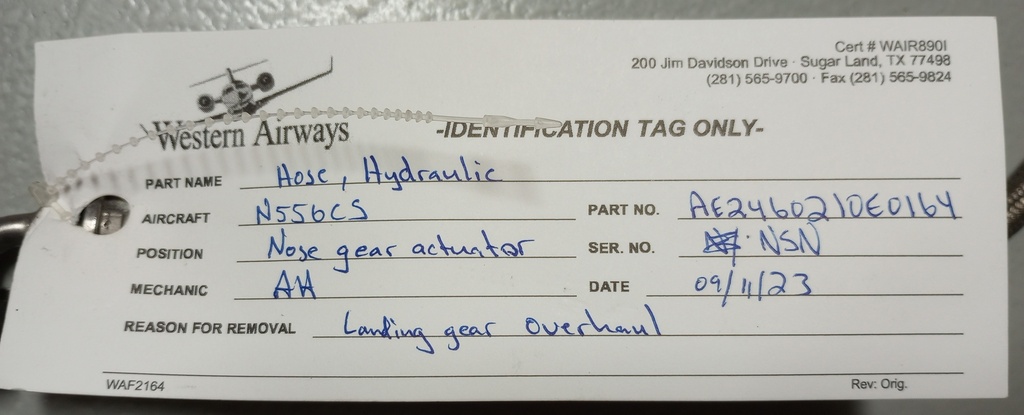 Cert # WAIR890I
200 Jim Davidson Drive · Sugar Land, TX 77498
(281) 565-9700 · Fax (281) 565-9824
Western Airways
-IDENTIFICATION TAG ONLY-
PART NAME Hose, Hydraulic
AIRCRAFT N556CS PART NO. AE2460210E0164
POSITION Nose gear actuator SER. NO. NSN
MECHANIC AH DATE 09/11/23
REASON FOR REMOVAL Landing gear overhaul
WAF2164 Rev: Orig.